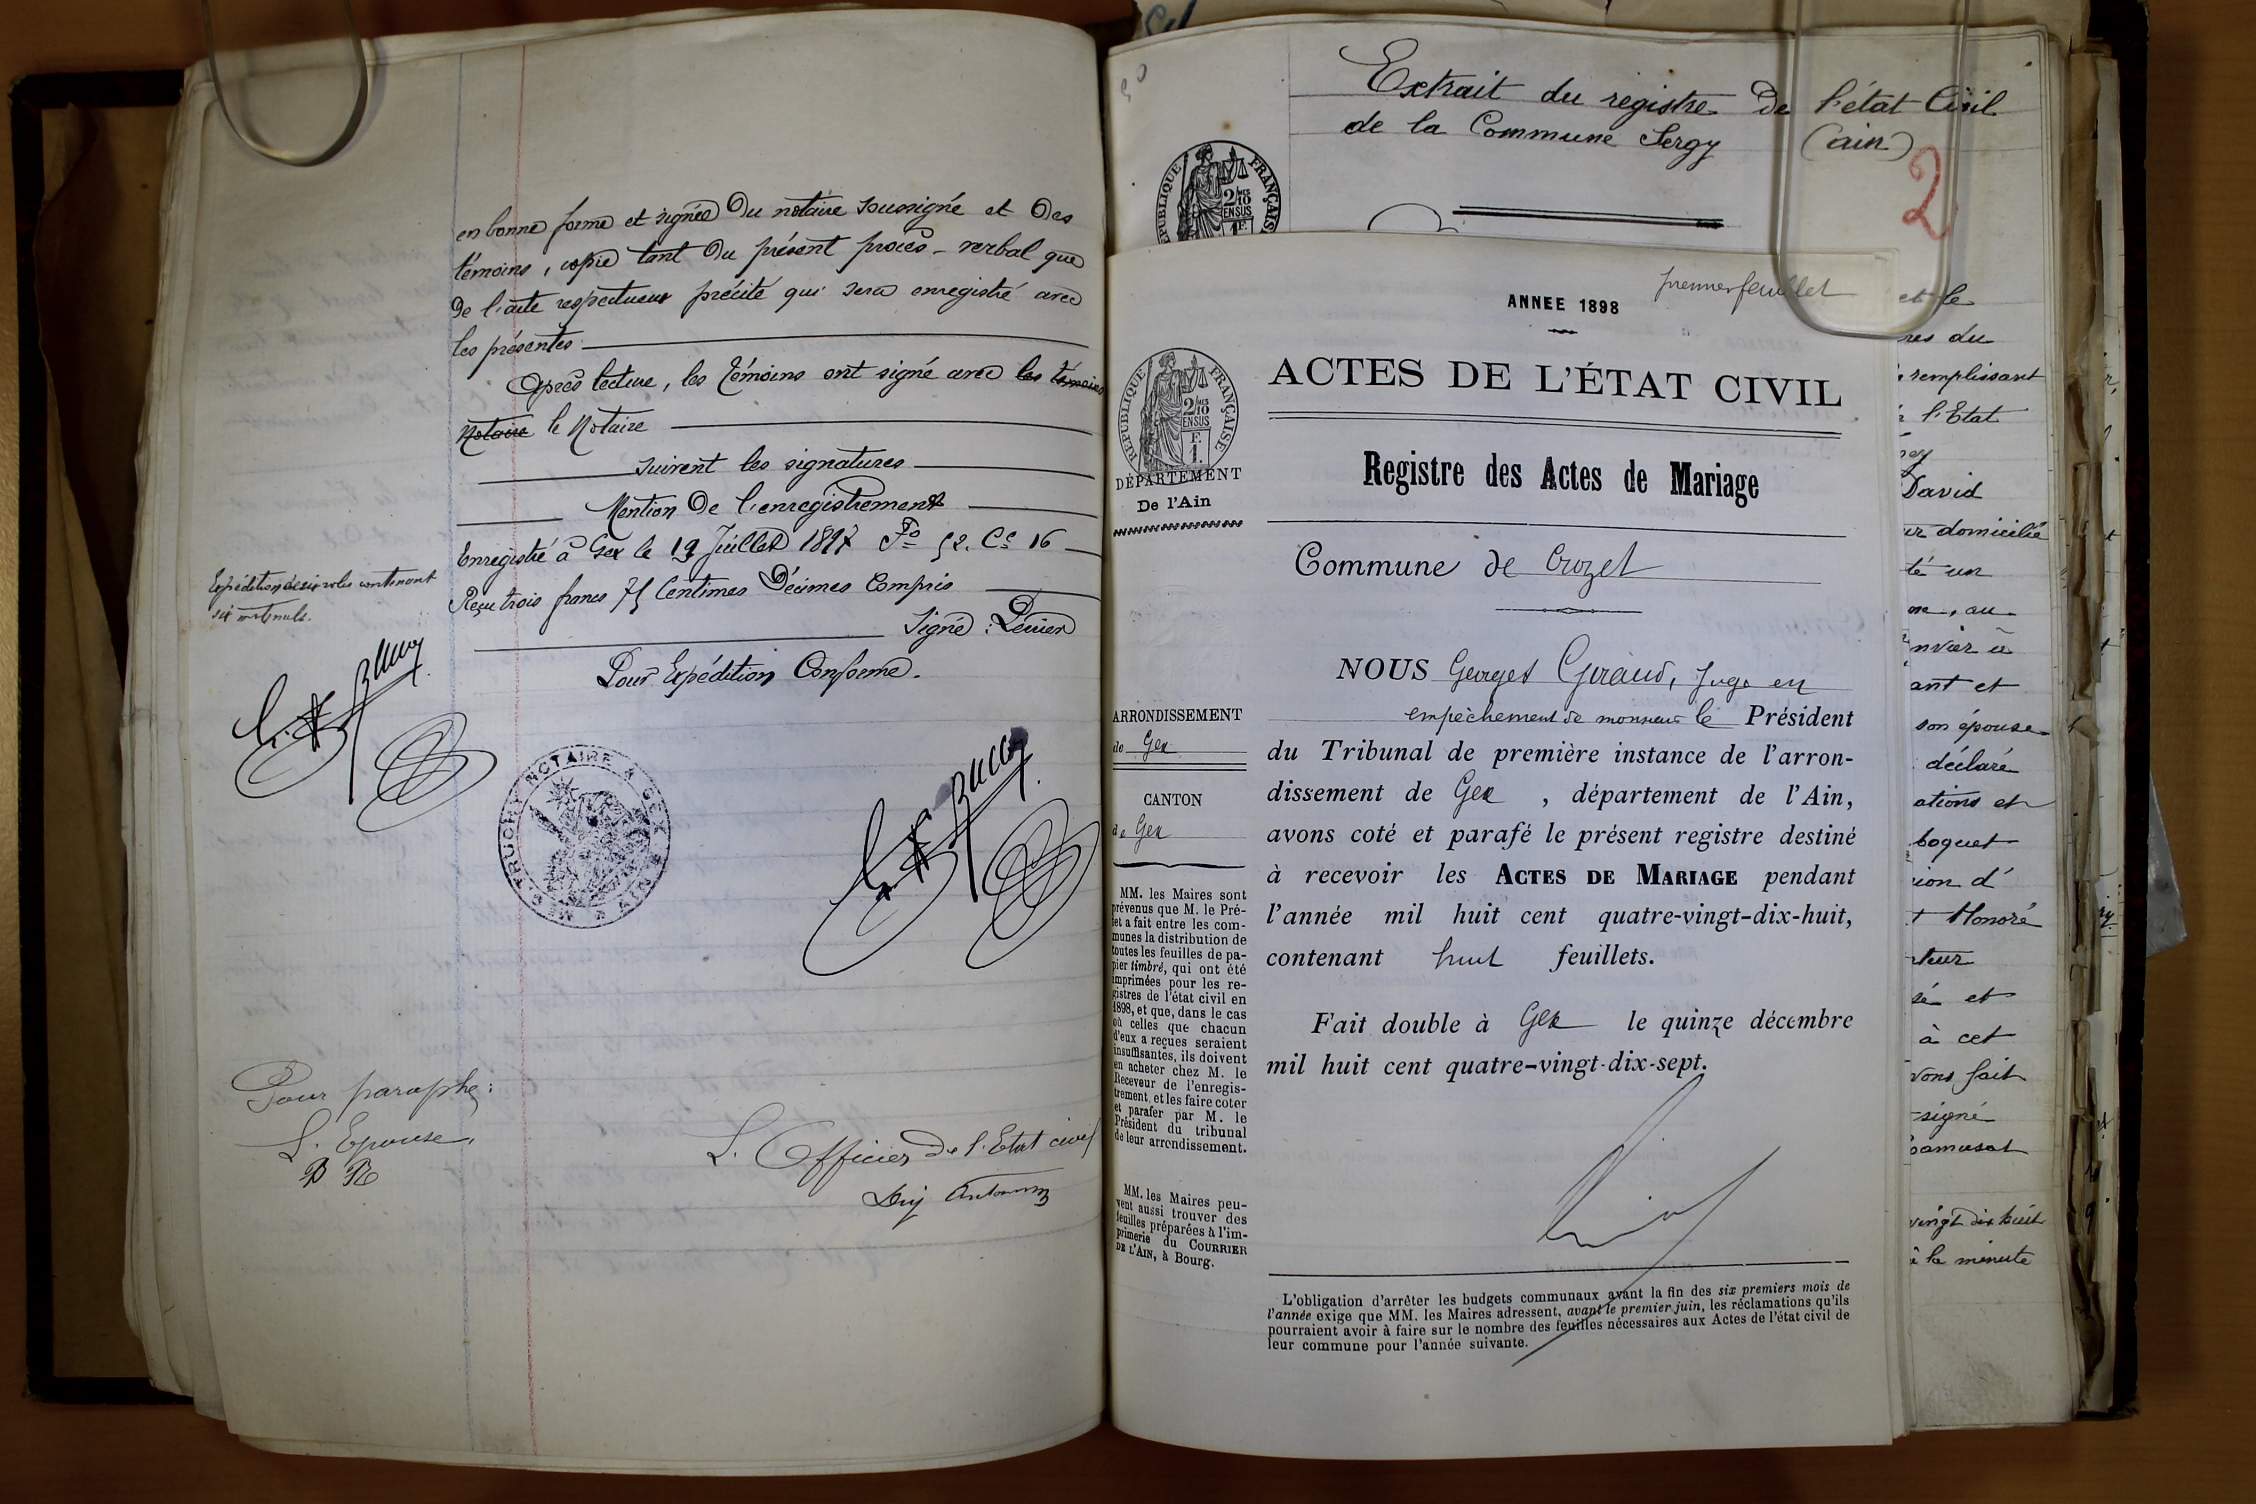 en bonne forme et signée du notaire soussigné et des
témoins, copie tant du présent procès-verbal que
de l'acte respectueux précité qui sera enregistré avec
les présentes
Après lecture, les témoins ont signé avec les témoins
Notaire le Notaire
suivent les signatures
Mention de l'enregistrement
Enregistré à Gex le 19 Juillet 1897 Fo 52. Ce 16
Reçu trois francs 75 Centimes Décimes Compris
Signé :
Pour Expédition Conforme.
Expédition de six roles contenant
six mots nuls.
NOTAIRE A GEX
AIN
Pour paraphe :
L'Epouse,
B R
L'Officier de l'Etat civil
Extrait du registre De l'état Civil
de la Commune Sergy (ain)
2
RÉPUBLIQUE FRANÇAISE
2/10MES
EN SUS
1F.
premier feuillet
ANNEE 1898
ACTES DE L'ÉTAT CIVIL
RÉPUBLIQUE FRANÇAISE
2/10MES
EN SUS
F.
1.
DÉPARTEMENT
De l'Ain
Registre des Actes de Mariage
Commune de Crozet
NOUS Georges Giraud, Juge en
empêchement de monsieur le Président
du Tribunal de première instance de l'arron-
dissement de Gex , département de l'Ain,
avons coté et parafé le présent registre destiné
à recevoir les ACTES DE MARIAGE pendant
l'année mil huit cent quatre-vingt-dix-huit,
contenant huit feuillets.
Fait double à Gex le quinze décembre
mil huit cent quatre-vingt-dix-sept.
ARRONDISSEMENT
de Gex
CANTON
de Gex
MM. les Maires sont
prévenus que M. le Pré-
fet a fait entre les com-
munes la distribution de
toutes les feuilles de pa-
pier timbré, qui ont été
imprimées pour les re-
gistres de l'état civil en
1898, et que, dans le cas
où celles que chacun
d'eux a reçues seraient
insuffisantes, ils doivent
en acheter chez M. le
Receveur de l'enregis-
trement, et les faire coter
et parafer par M. le
Président du tribunal
de leur arrondissement.
MM. les Maires peu-
vent aussi trouver des
feuilles préparées à l'im-
primerie du COURRIER
DE L'AIN, à Bourg.
L'obligation d'arrêter les budgets communaux avant la fin des six premiers mois de
l'année exige que MM. les Maires adressent, avant le premier juin, les réclamations qu'ils
pourraient avoir à faire sur le nombre des feuilles nécessaires aux Actes de l'état civil de
leur commune pour l'année suivante.
et le
res du
remplissant
l'Etat
David
domiciliée
té un
au
nvier à
ant et
son épouse
déclaré
ations et
boquet
ion d'
Honoré
teur
sé et
à cet
vons fait
signé
vingt dix huit
à la minute